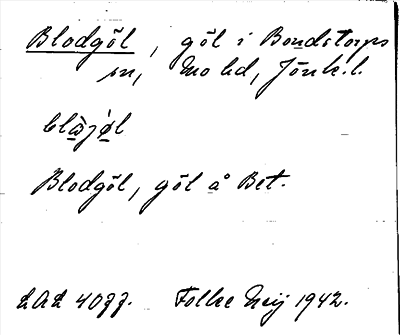 Blodgöl, göl i Bondstorps
sn, Mo hd, Jönk. l.
Blodgöl, göl å Bet.
LAL 4077. Folke Neij 1942.